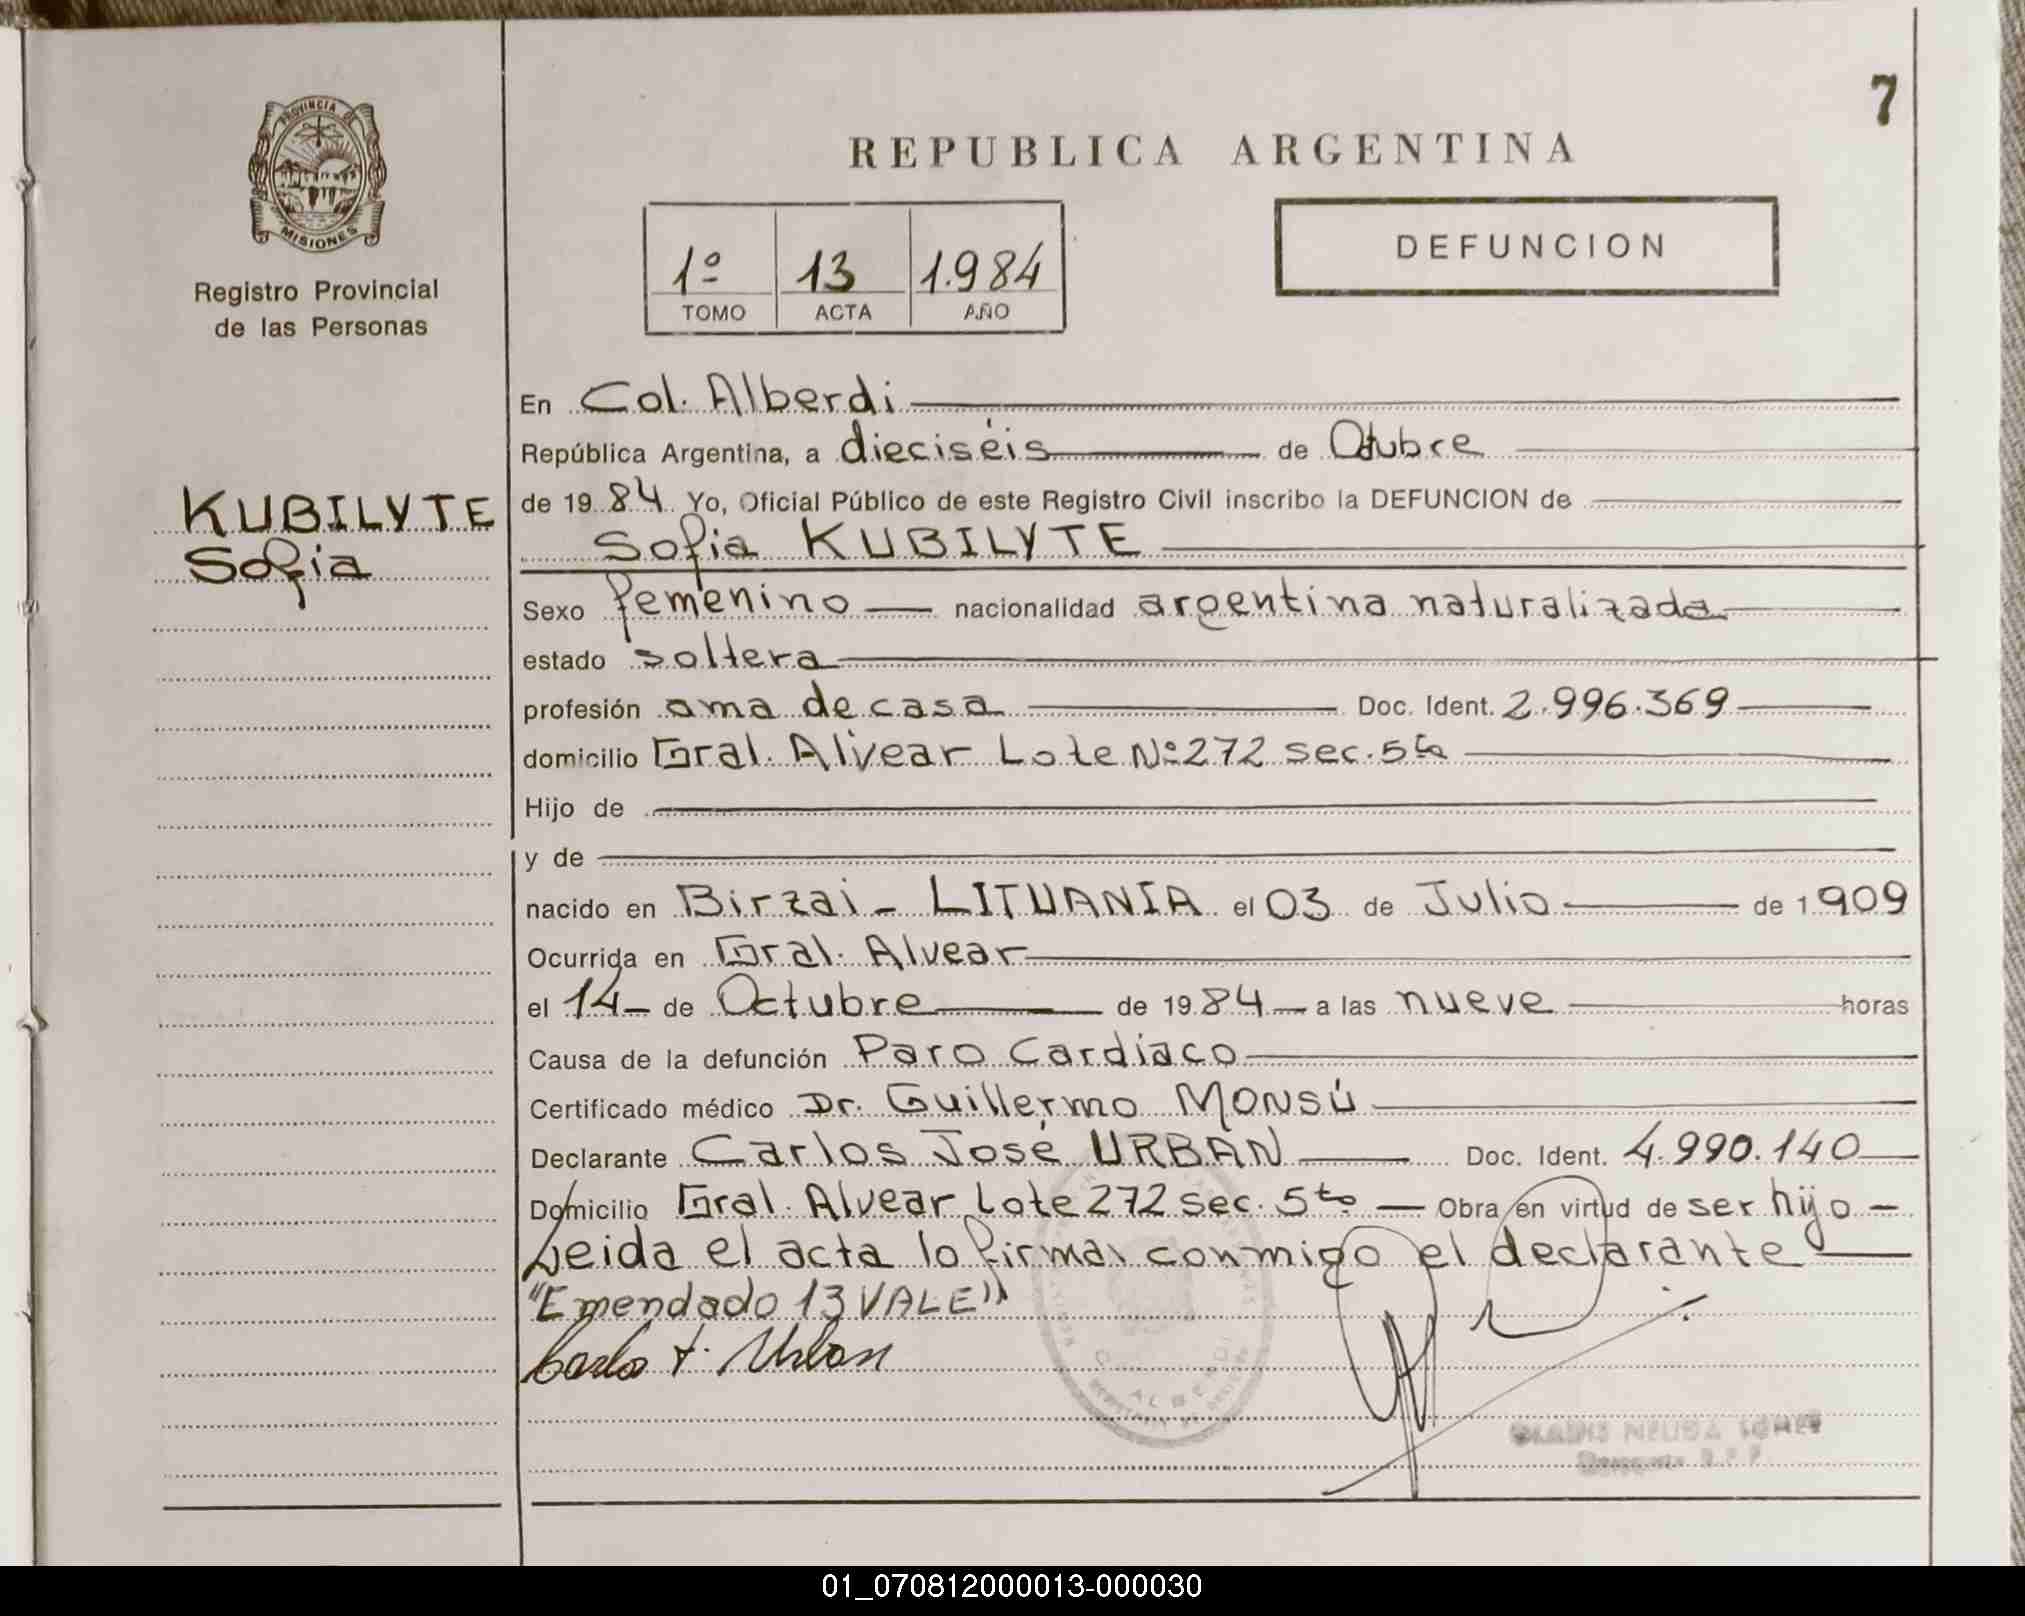 7
PROVINCIA DE
MISIONES
Registro Provincial
de las Personas
REPUBLICA ARGENTINA
1º 13 1.984
TOMO ACTA AÑO
DEFUNCION
KUBILYTE
Sofia
En Col. Alberdi
República Argentina, a dieciséis de Octubre
de 1984 Yo, Oficial Público de este Registro Civil inscribo la DEFUNCION de
Sofia KUBILYTE
Sexo femenino nacionalidad argentina naturalizada
estado soltera
profesión ama de casa Doc. Ident. 2.996.369
domicilio Gral. Alvear Lote Nº 272 sec. 5ta
Hijo de
y de
nacido en Birzai - LITUANIA el 03 de Julio de 1909
Ocurrida en Gral. Alvear
el 14 de Octubre de 1984 a las nueve horas
Causa de la defunción Paro Cardiaco
Certificado médico Dr. Guillermo MONSÚ
Declarante Carlos José URBAN Doc. Ident. 4.990.140
Domicilio Gral. Alvear Lote 272 sec. 5ta Obra en virtud de ser hijo -
Leida el acta lo firma conmigo el declarante
"Emendado 13 VALE"
Carlos J. Urban
ALBERDI
01_070812000013-000030